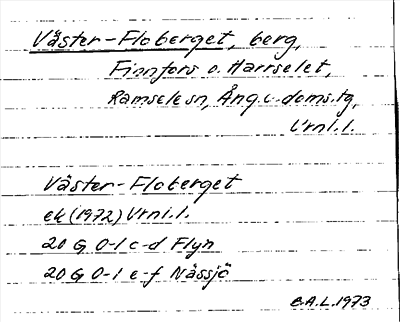 Väster-Floberget, berg,
Finnfors o. Harrselet,
Ramsele sn, Ång.v.doms.tg,
Vrnl.l.
Väster-Floberget
ek (1972) Vrnl.l.
20 G 0-1 c-d Flyn
20 G 0-1 e-f Nässjö
E.A.L. 1973